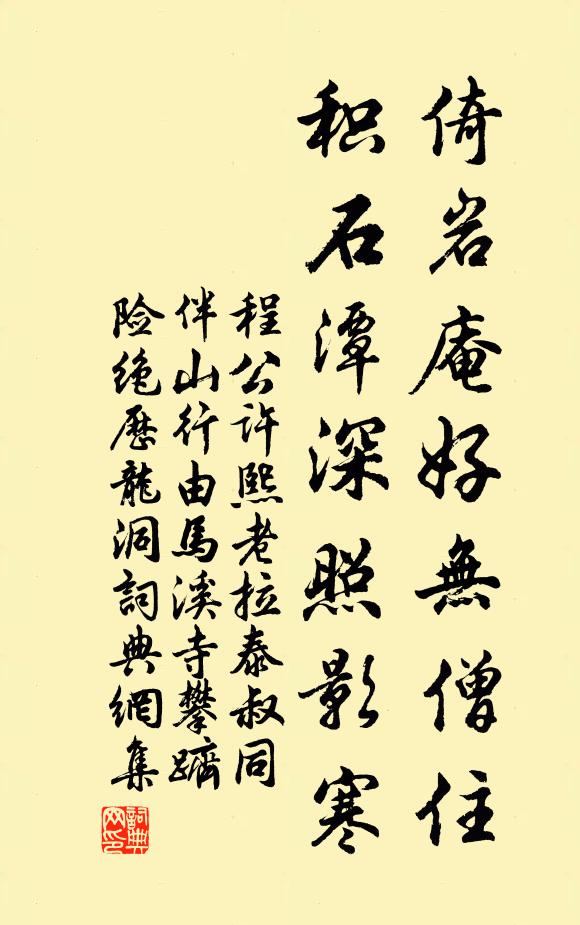 倚岩庵好無僧住
积石潭深照影寒
程公許熙老拉泰叔同
伴山行由馬溪寺攀躋
险绝歷龍洞詞典網集
詞典网印